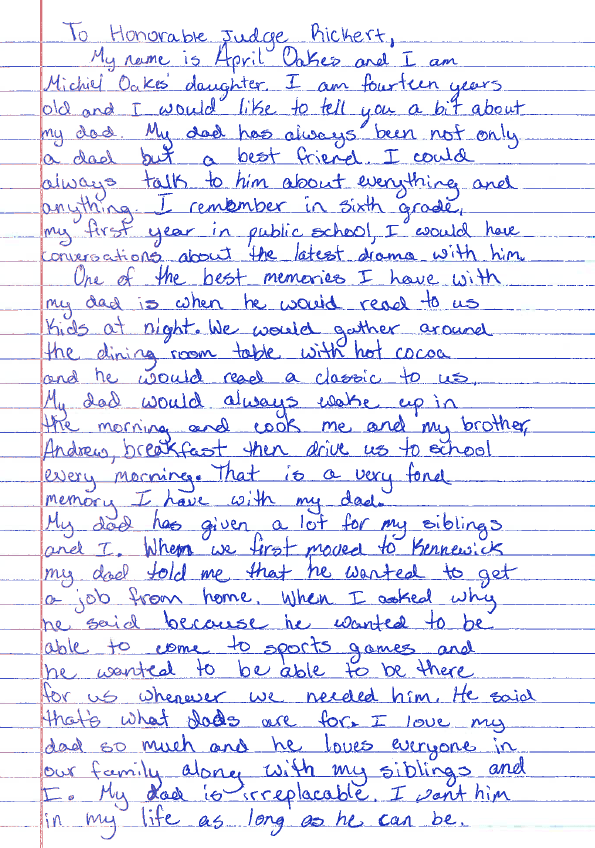 To Honorable Judge Rickert,
My name is April Oakes and I am
Michiel Oakes' daughter. I am fourteen years
old and I would like to tell you a bit about
my dad. My dad has always been not only
a dad but a best friend. I could
always talk to him about everything and
anything. I remember in sixth grade,
my first year in public school, I would have
conversations about the latest drama with him.
One of the best memories I have with
my dad is when he would read to us
kids at night. We would gather around
the dining room table with hot cocoa
and he would read a classic to us.
My dad would always wake up in
the morning and cook me and my brother,
Andrew, breakfast then drive us to school
every morning. That is a very fond
memory I have with my dad.
My dad has given a lot for my siblings
and I. When we first moved to Kennewick
my dad told me that he wanted to get
a job from home. When I asked why
he said because he wanted to be
able to come to sports games and
he wanted to be able to be there
for us whenever we needed him. He said
that's what dads are for. I love my
dad so much and he loves everyone in
our family along with my siblings and
I. My dad is irreplacable. I want him
in my life as long as he can be.